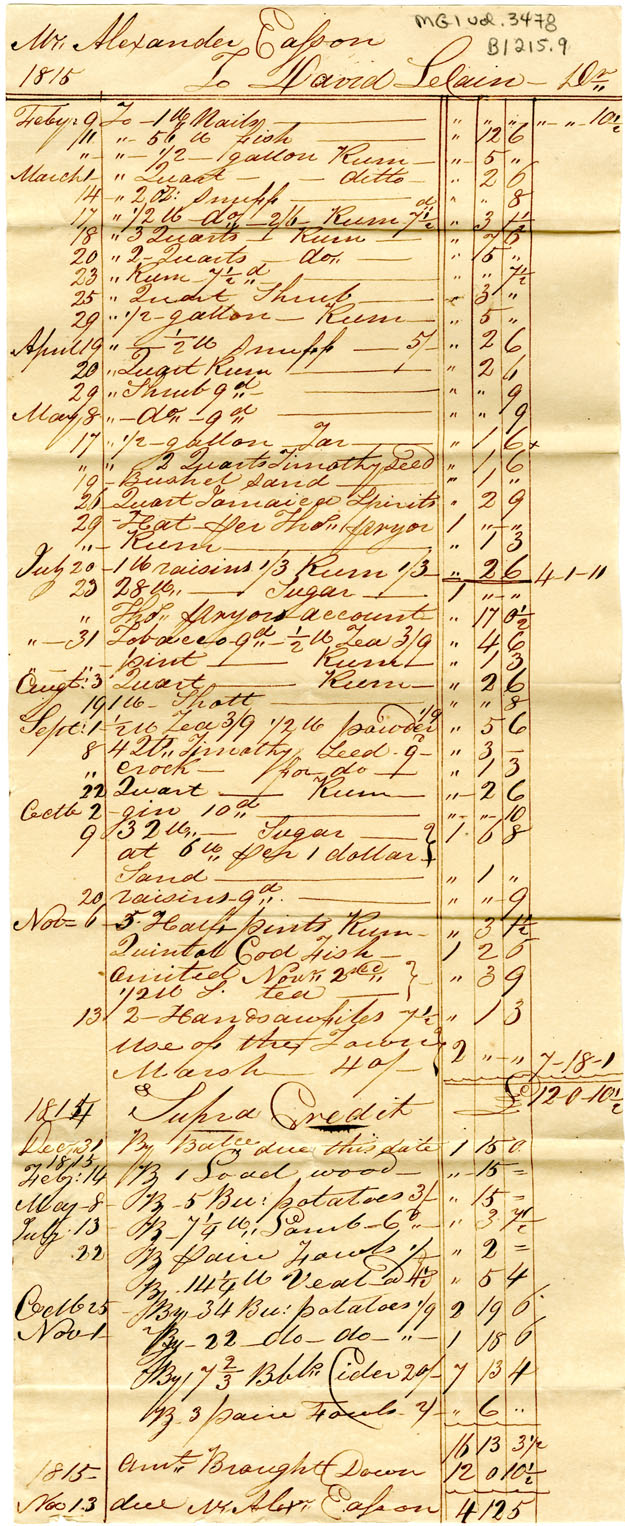 MG1 vol. 3478
B1215.9
Mr. Alexander Easson
1815 To David Selain - Dr
Feby: 9 To - 1 lb Nails " " " " - " - 10 1/2
11 " - 50 lb Fish " 12 6
" - " - 1/2 - gallon Rum " 5 "
March 1 " Quart ditto " 2 6
14 " 2 oz: Snuff " " 8
17 " 1/2 lb - do - 2/6 - Rum 7 1/2 d " 3 1 1/2
18 " 3 Quarts - Rum " 7 6
20 " 2 - Quarts do " 5 "
23 " Rum 7 1/2 d " " 7 1/2
25 " Quart Shrub " 3 "
29 " 1/2 - gallon - Rum " 5 "
April 19 " - 1/2 lb Snuff - 5/ " 2 6
20 " Quart Rum " 2 6
29 " Shrub 9d " " 9
May 8 " - do - 9d " " 9
17 " 1/2 - gallon - Tar " 1 6 x
" " 2 Quarts Timothy Seed " 1 6
19 - Bushel Sand " 1 "
26 Quart Jamaica Spirits " 2 9
29 - Hat - per Thos. Pryor 1 " - "
" - Rum " 1 3
July 20 - 1 lb raisins 1/3 Rum 1/3 " 2 6 4 - 1 - 11
23 28 lb - Sugar 1 " - "
" Thos. Pryors account " 17 0 1/2
" - 31 Tobacco 9d " - 1/2 lb Tea 3/9 " 4 6
" - " - pint Rum " 1 3
Augt: 3 Quart Rum " 2 6
19 1 lb - Shott " " 8
Sept: 1 1/2 lb Tea 3/9 1/2 lb powder 1/9 " 5 6
8 4 Qts Timothy Seed 9 " 3 -
" crock - for do " 1 3
22 Quart Rum " - 2 6
Octb 2 - gin 10d " - " 10
9 32 lb - Sugar 1 6 8
at 6 lb per 1 dollar
Sand " 1 "
20 raisins 9d " " 9
Nov 6 - 5 Half pints Rum " 3 1 1/2
Quintal Cod Fish 1 2 6
omited Novr 2d " 3 9
1/2 lb S. tea
13 2 - Handsaw files 7 1/2 " 1 3
Use of the Town
Marsh 40/- 2 " - " 7 - 18 - 1
£ 12 - 0 - 10 1/2
1814 Supra Credit
Decr 31 By Balce due this date 1 15 0
1815
Feby: 14 By 1 Load wood " 15 =
May - 8 - By - 5 Bu: potatoes 3/ " 15 =
July 13 - By - 7 1/4 lb Lamb - 6d " 3 7 1/2
22 By pair Fowls 2/ " 2 =
By 14 1/4 lb Veal @ 4 1/2 " 5 4
Octb 25 - By - 34 Bu: potatoes 1/9 2 19 6
Nov 1 By - 22 - do - do - " 1 18 6
By 7 2/3 Bbls Cider 20/- 7 13 4
By 3 pair Fowls 2/ " 6 "
16 13 3 1/2
1815 amt Brought Down 12 0 10 1/2
Nov 13 due Mr. Alexr. Easson 4 12 5